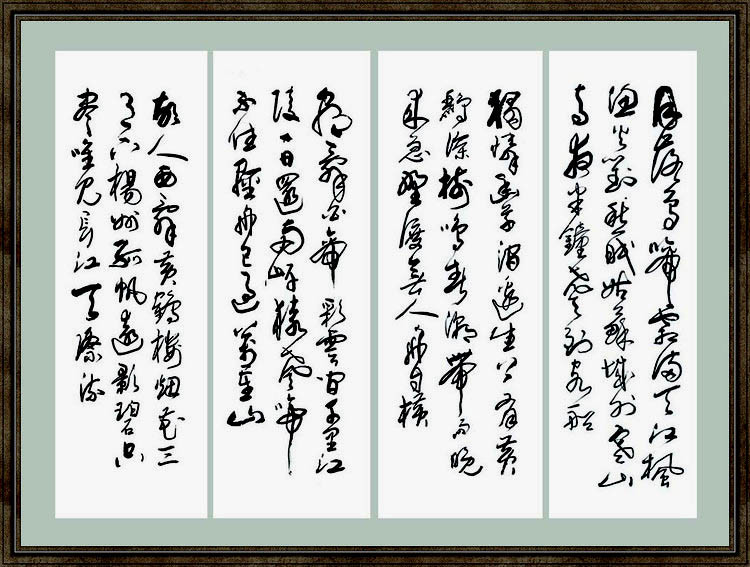 月落烏啼霜滿天江楓
漁火對愁眠姑蘇城外寒山
寺夜半鐘聲到客船
獨憐幽草澗邊生上有黃
鸝深樹鳴春潮帶雨晚
來急野渡無人舟自橫
朝辭白帝彩雲間千里江
陵一日還兩岸猿聲啼
不住輕舟已過萬重山
故人西辭黃鶴樓烟花三
月下楊州孤帆遠影碧空
盡唯見長江天際流